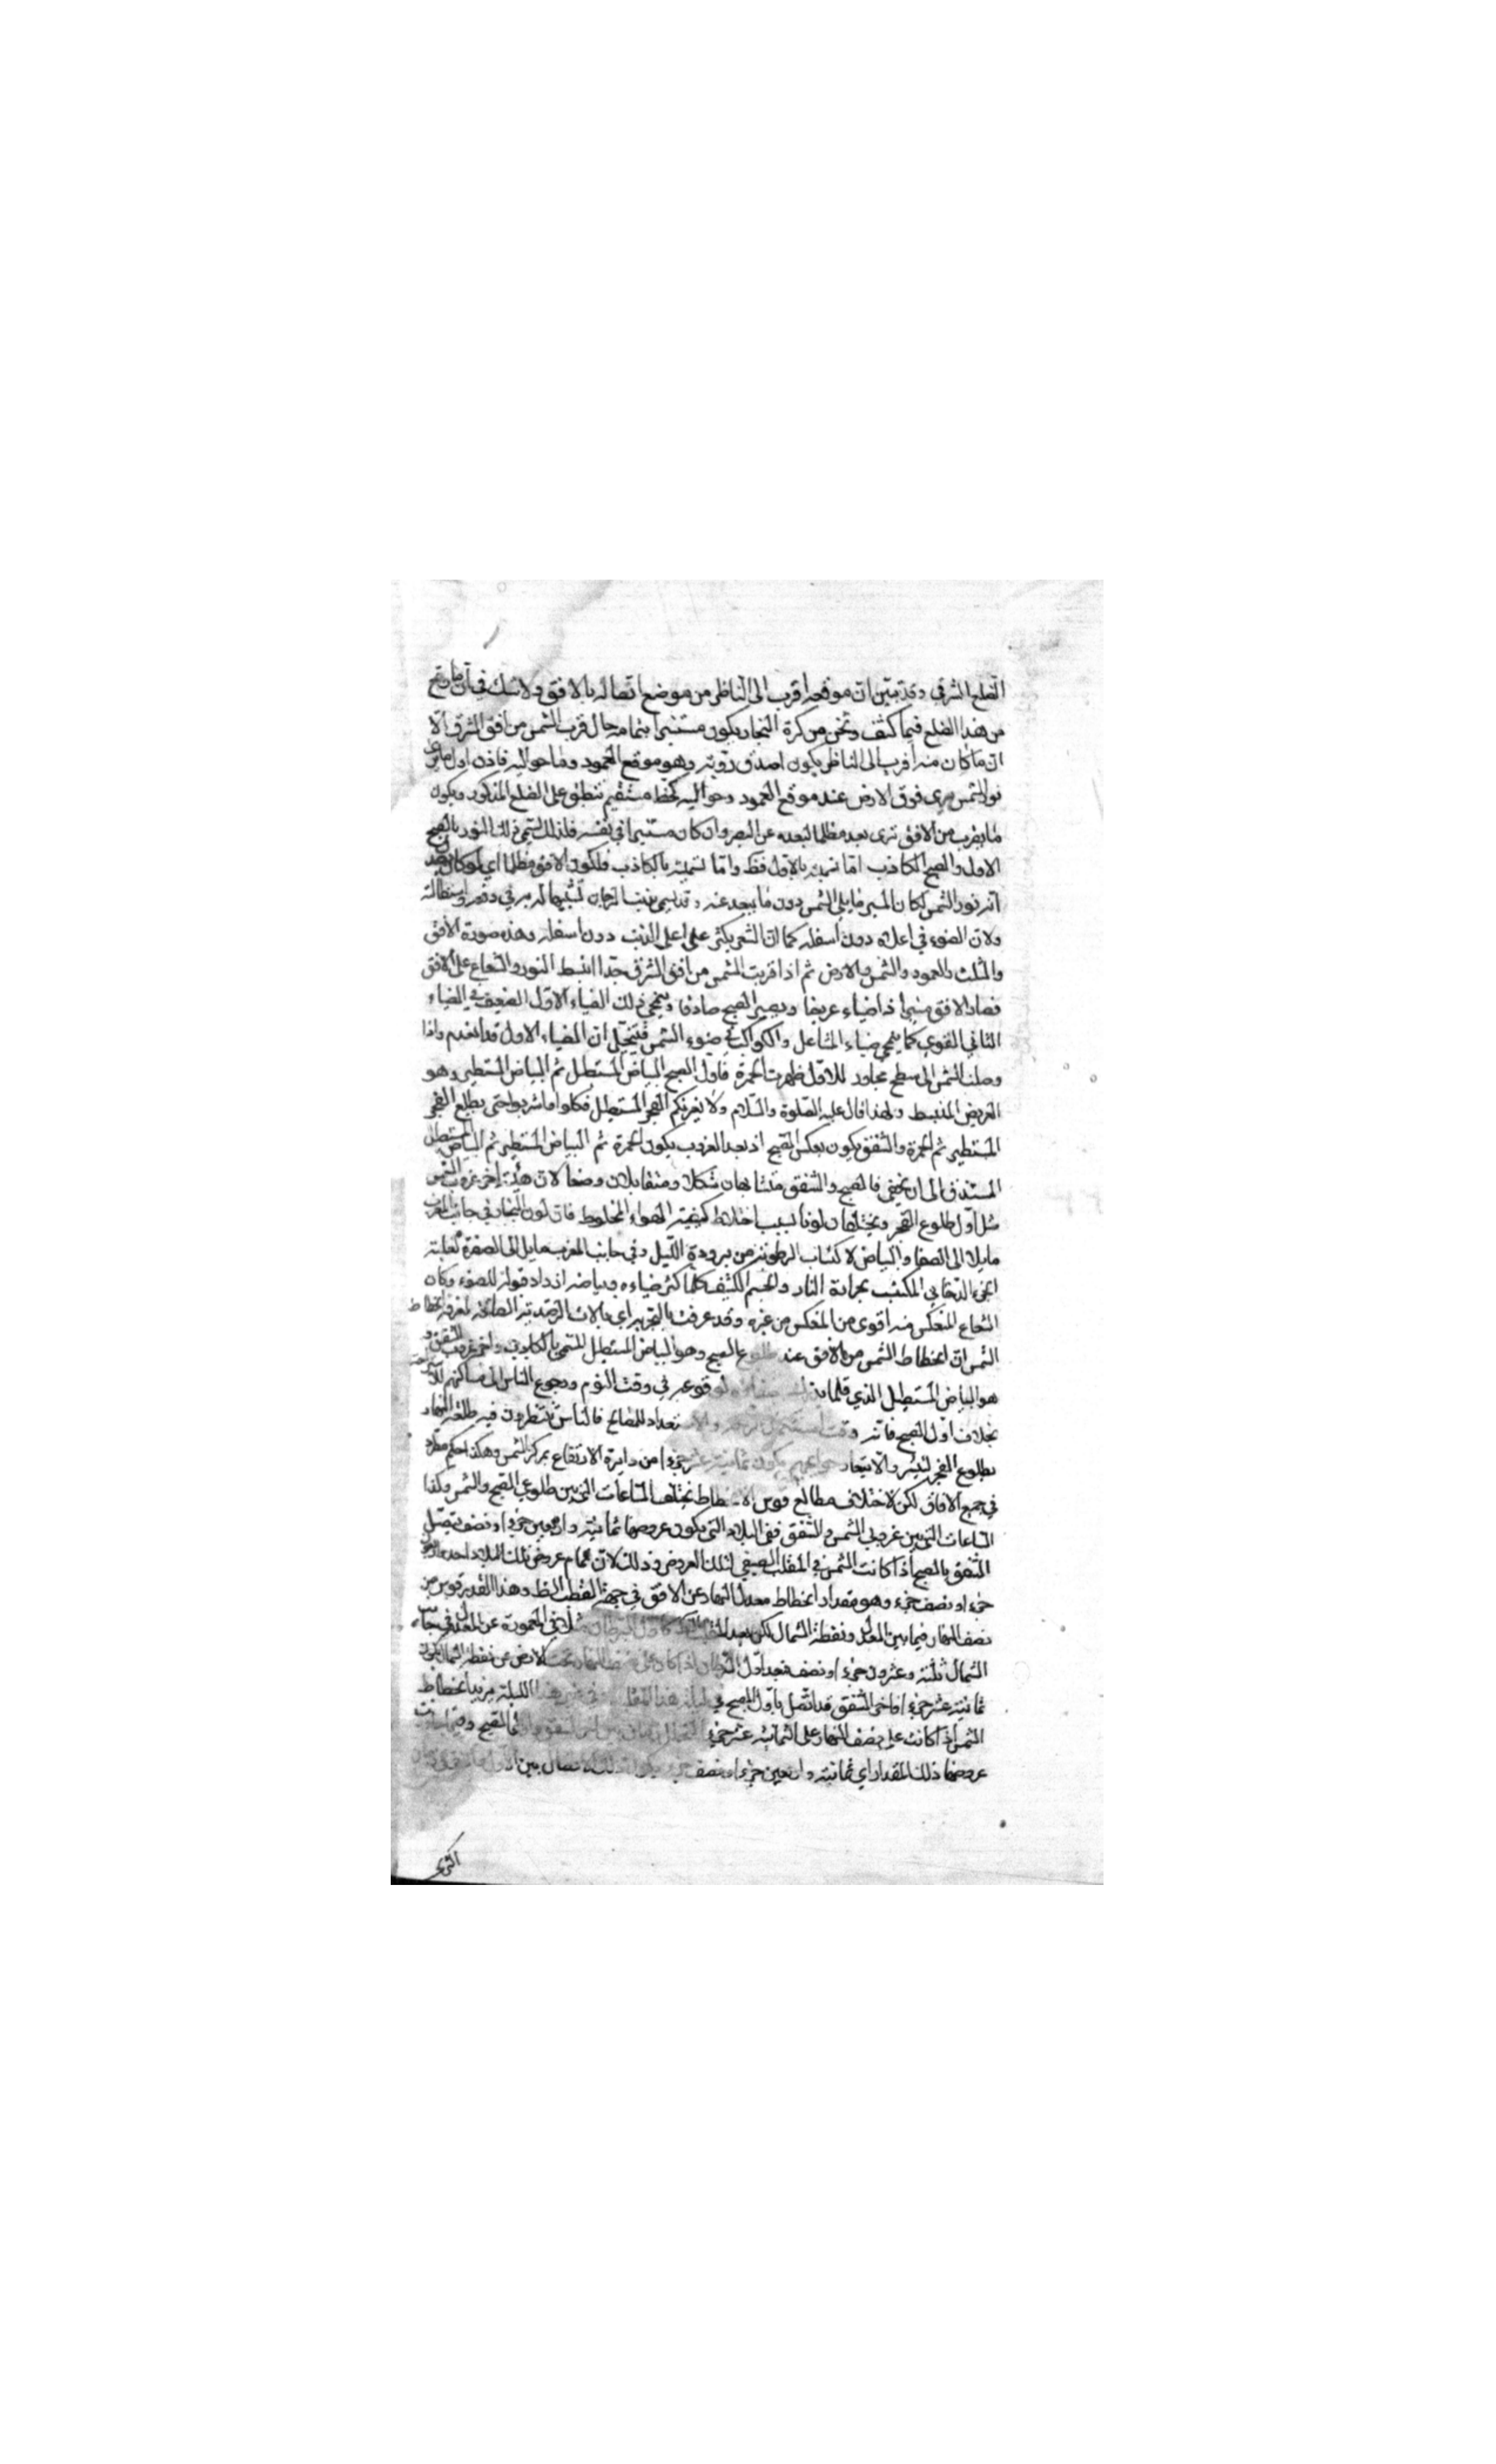 الضلع الشرقي وقد تبين ان موقعه اقرب الى الناظر من موضع اتصاله بالافق ولا شك في ان ما وقع
من هذا الضلع فيما كثف وثخن من كرة البخار يكون مستنيرا بتمامه حال قرب الشمس من افق الشرق الا
ان ما كان منه اقرب الى الناظر يكون اصدق روية وهو موقع العمود وما حواليه فاذن اول ما يرى
نور الشمس يرى فوق الارض عند موقع العمود وحواليه كخط مستقيم منطبق على الضلع المذكور ويكون
ما يقرب من الافق ترى بعد مظلما لبعده عن البصر وان كان مستنيرا في نفسه فلذلك يسمى ذلك النور بالصبح
الاول والصبح الكاذب اما تسميته بالاول فظ واما تسميته بالكاذب فلكون الافق مظلما اي لو كان يصدق
انه نور الشمس لكان المنير ما يلي الشمس دون ما يبعد عنه وقد يسمى بذنب السرحان تشبيها له به في دقته واستطالته
ولان الضوء في اعلاه دون اسفله كما ان الشعر يكثر على اعلى الذنب دون اسفله وهذه صورة الافق
والمثلث والعمود والشمس والارض ثم اذا قربت الشمس من افق الشرق جدا انبسط النور والشعاع على الافق
فصار الافق منيرا ذا ضياء عريضا ويصير الصبح صادقا وينمحي ذلك الضياء الاول الضعيف في الضياء
الثاني القوي كما ينمحي ضياء المشاعل والكواكب في ضوء الشمس فيتخيل ان الضياء الاول قد انعدم واذا
وصلت الشمس الى سطح مجاور للاول ظهرت الحمرة فاول الصبح البياض المستطيل ثم البياض المستطير وهو
العريض المنبسط ولهذا قال عليه الصلوة والسلام ولا يغرنكم الفجر المستطيل فكلوا واشربوا حتى يطلع الفجر
المستطير ثم الحمرة والشفق يكون بعكس الصبح اذ بعد الغروب يكون الحمرة ثم البياض المستطير ثم البياض المستطيل
المستدق الى ان يخفى فالصبح والشفق متشابهان شكلا ومتقابلان وضعا لان هيئة اخر غروب الشمس
مثل اول طلوع الفجر ويختلفان لونا بسبب اختلاط كيفية الهواء المخلوط فان لون البخار في جانب المشرق
مايلا الى الصفا والبياض لاكتساب الرطوبة من برودة الليل وفي جانب المغرب مايل الى الصفرة لغلبة
الجزء الدخاني المكتسب بحرارة النار والجسم الكثيف كلما كثر ضياءه وبياضه ازداد قبوله للضوء وكان
الشعاع المنعكس منه اقوى من المنعكس من غيره وقد عرفت بالتجربة اي بالات الرصدية الصالحة لمعرفة انحطاط
الشمس ان انحطاط الشمس من الافق عند طلوع الصبح وهو البياض المستطيل المسمى بالكاذب واخر غروب الشفق و
هو البياض المستطيل الذي قلما لوقوعه في وقت النوم ورجوع الناس الى مساكنهم
بخلاف اول الصبح فانه وقت والاستعداد للمصالح فالناس ينتظرون فيه طليعة النهار
بطلوع الفجر يكون ثمانية عشر جزءا من دايرة الارتفاع بمركز الشمس وهكذا حكم مطرد
في جميع الافاق لكن لاختلاف مطالع قوس الانحطاط تختلف الساعات التي بين طلوعي الصبح والشمس وكذا
الساعات التي بين غروبي الشمس والشفق ففي البلاد التي يكون عروضها ثمانية واربعين جزءا ونصف يتصل
الشفق بالصبح اذا كانت الشمس في المنقلب الصيفي لتلك العروض وذلك لان تمام عروض تلك البلاد احد واربعون
جزءا ونصف جزء وهو مقدار انحطاط معدل النهار عن الافق في جهة القطب الظ وهذا القدر قوس من
نصف النهار فيما بين المعدل ونقطة الشمال لكن بعد عن المعدل في جانب
الشمال ثلثة وعشرون جزءا ونصف فبعد اول السرطان اذا كان على نصف النهار تحت الارض عن نقطة الشمال
ثمانية عشر جزءا فاخر الشفق قد اتصل باول الصبح في ليلة هذا المنقلب وفي غير هذا الليلة يزيد انحطاط
الشمس اذا كانت على نصف النهار على الثمانية عشر جزءا
عروضها ذلك المقدار اي ثمانية واربعين جزءا ونصف جزء يكون ذلك الاتصال بين